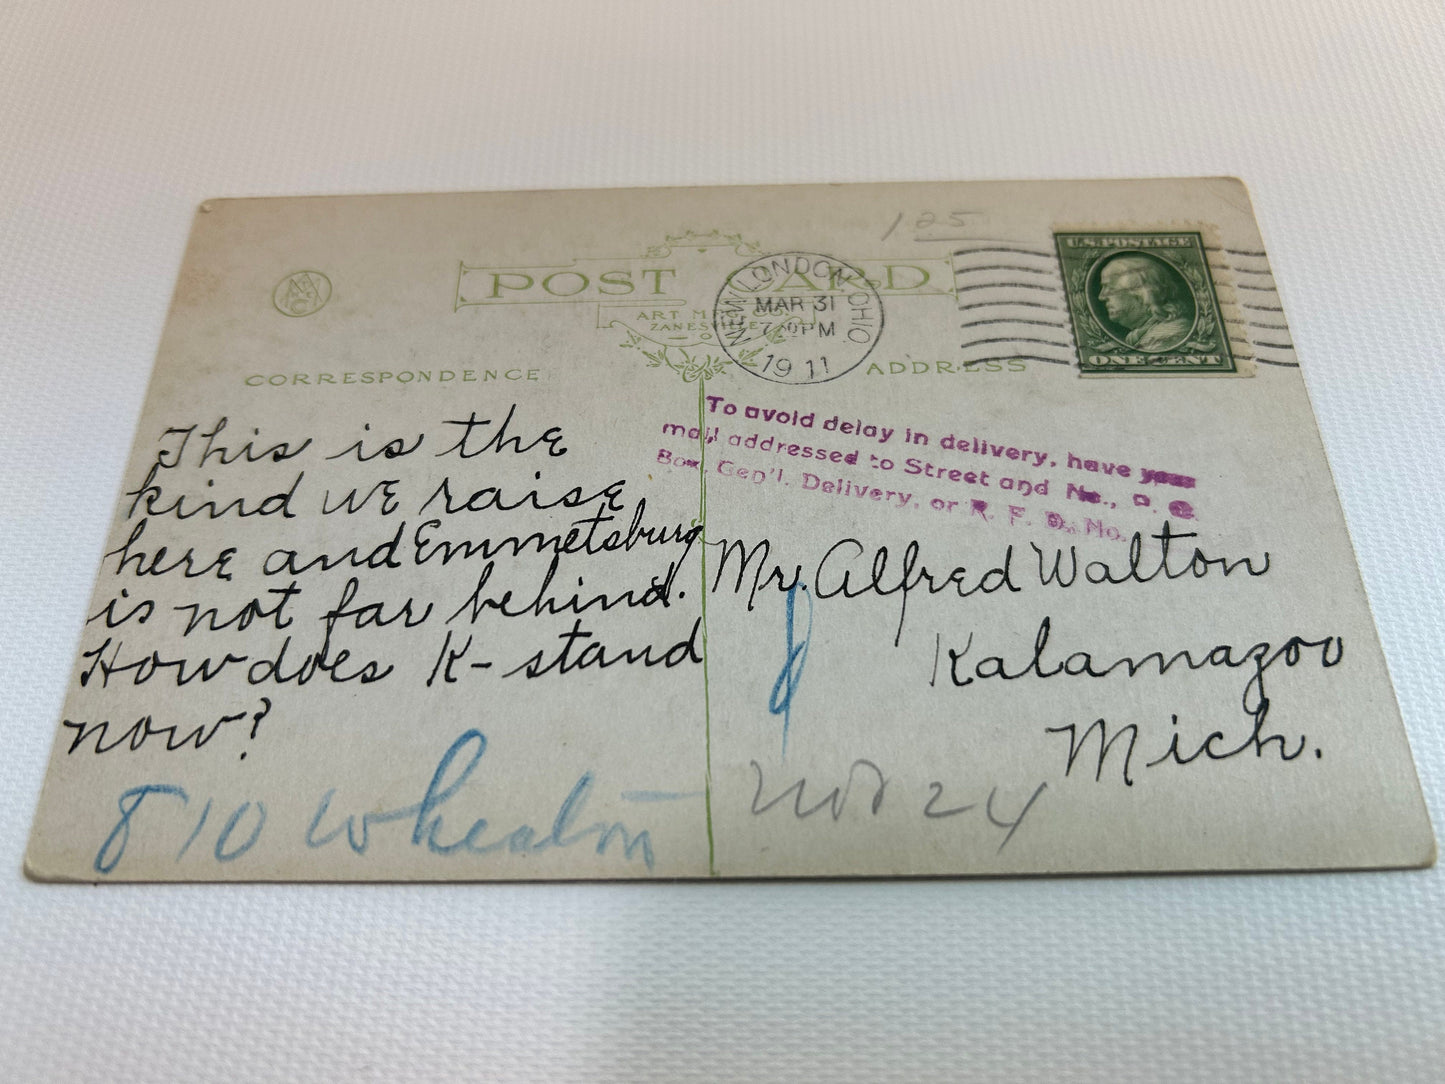 125
POST CARD
ART M
ZANESVILLE
O
NEW LONDON, OHIO
MAR 31
PM
1911
U.S. POSTAGE
ONE CENT
CORRESPONDENCE
ADDRESS
To avoid delay in delivery, have your
mail addressed to Street and No., P. O.
Box, Gen'l. Delivery, or R. F. D. No.
This is the
kind we raise
here and Emmetsburg
is not far behind.
How does K- stand
now?
Mr. Alfred Walton
Kalamazoo
Mich.
810 Wheaton
24